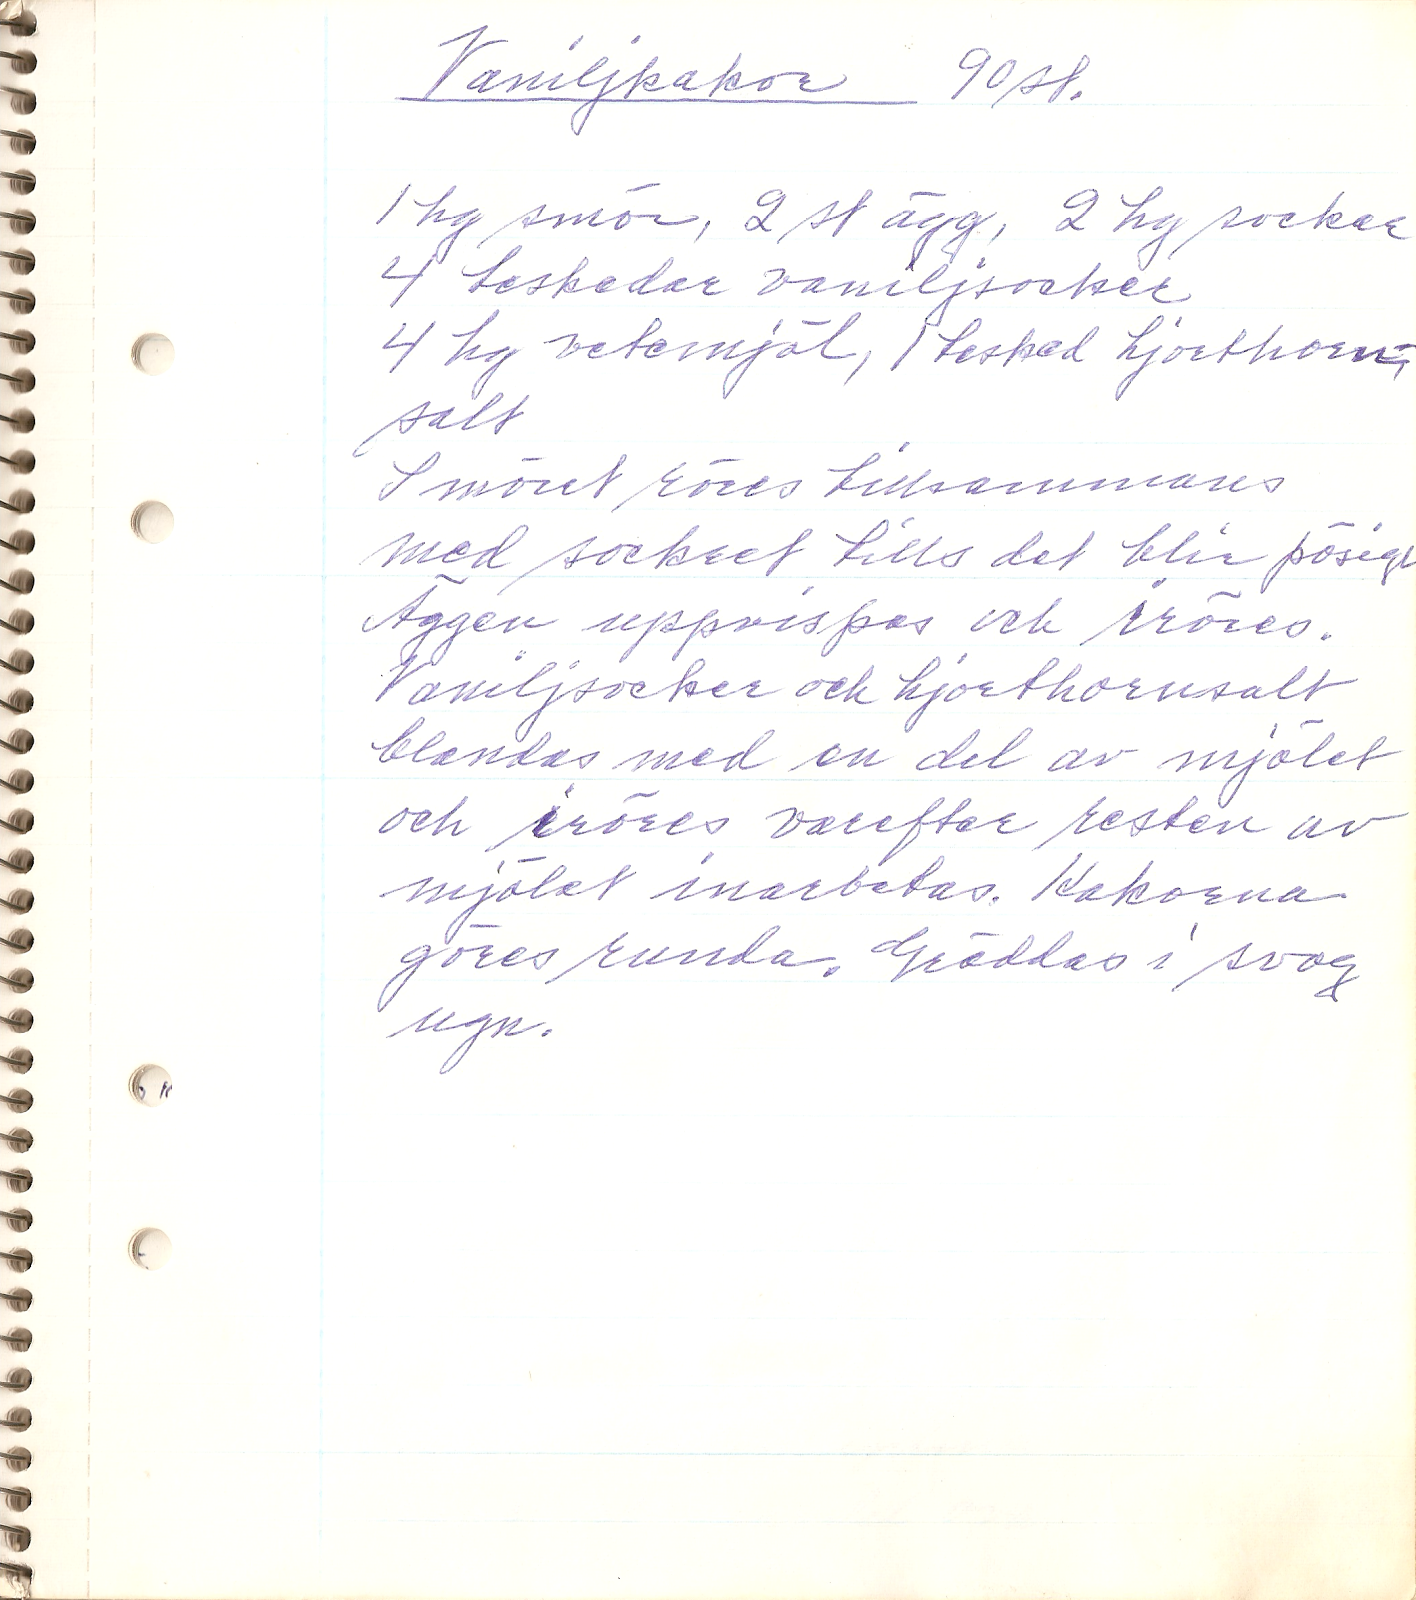 Vaniljkakor 90 st.
1 hg smör, 2 st ägg, 2 hg socker
4 teskedar vaniljsocker
4 hg vetemjöl, 1 tesked hjorthorn-
salt
Smöret röres tillsammans
med sockret tills det blir pösigt
Äggen uppvispas och iröres.
Vaniljsocker och hjorthornsalt
blandas med en del av mjölet
och iröres varefter resten av
mjölet inarbetas. Kakorna
göres runda. Gräddas i svag
ugn.